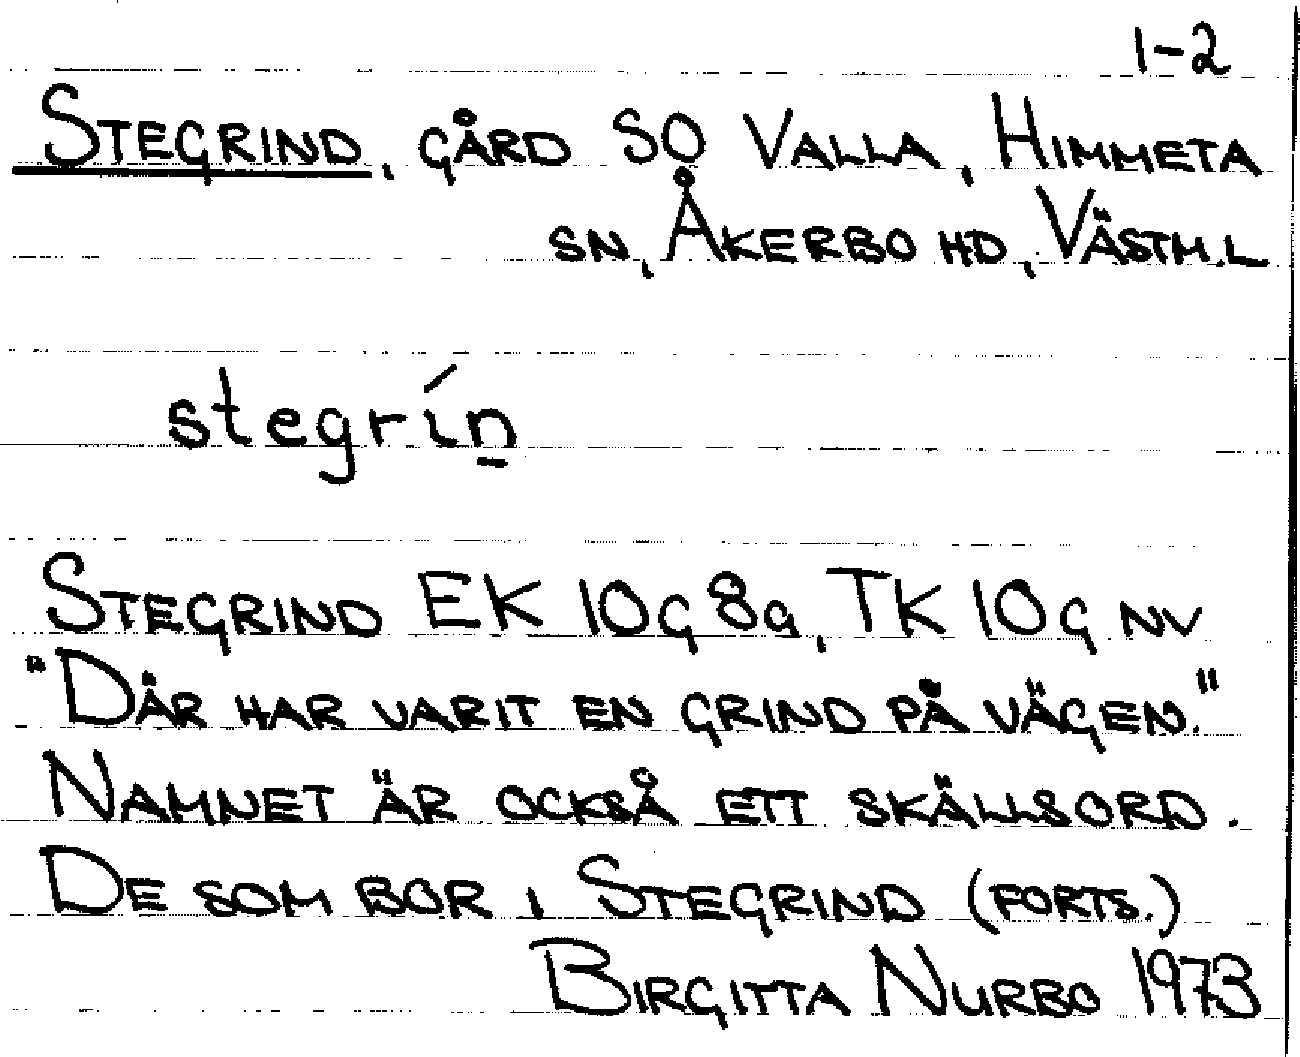 1-2
STEGRIND, GÅRD SO VALLA, HIMMETA
SN, ÅKERBO HD, VÄSTM.L
stegrín̲
STEGRIND EK 10G8a, TK 10G NV
"DÄR HAR VARIT EN GRIND PÅ VÄGEN."
NAMNET ÄR OCKSÅ ETT SKÄLLSORD.
DE SOM BOR I STEGRIND (FORTS.)
BIRGITTA NURBO 1973